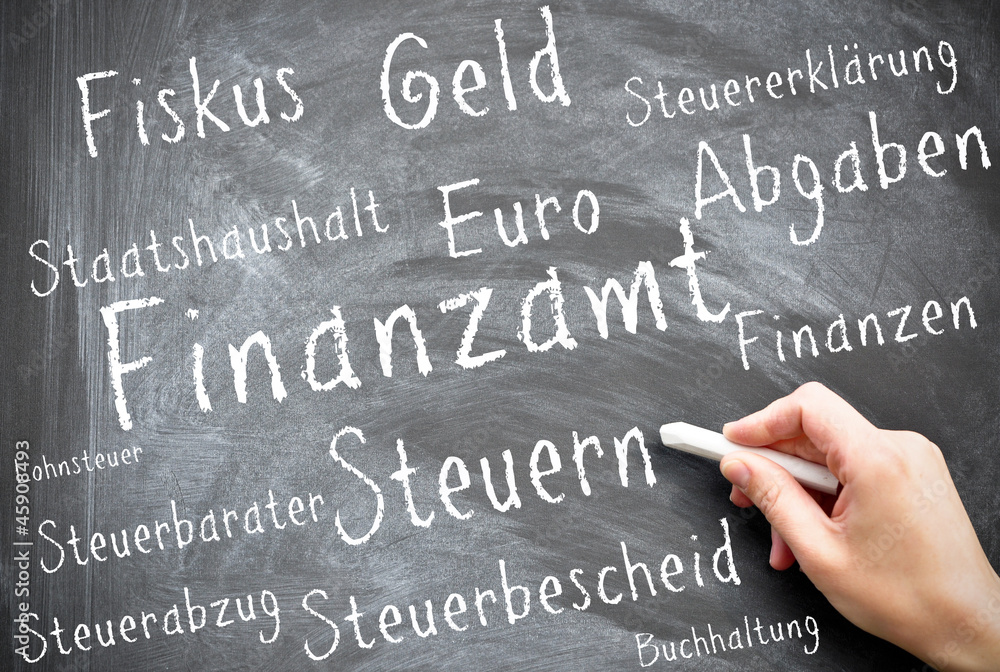 Fiskus Geld Steuererklärung
Abgaben
Staatshaushalt Euro
Finanzamt
Finanzen
Lohnsteuer Steuern
Steuerbarater
Steuerabzug Steuerbescheid
Buchhaltung
Adobe Stock | #45908493